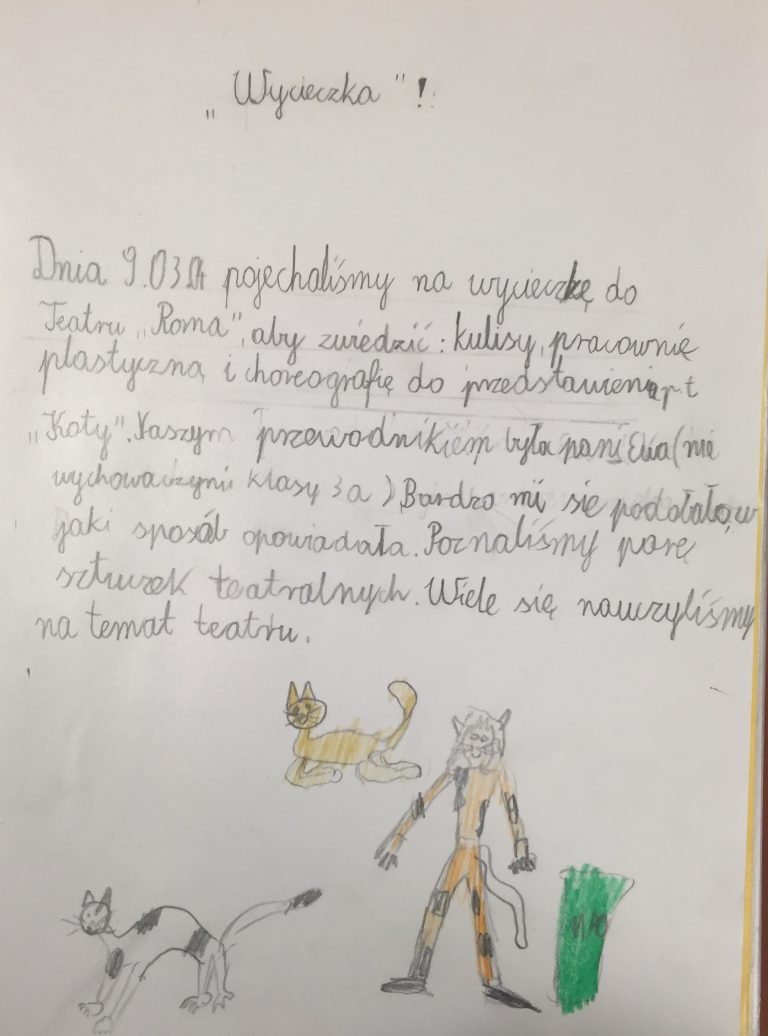 „Wycieczka"!
Dnia 9.03 pojechaliśmy na wycieczkę do
Teatru „Roma", aby zwiedzić: kulisy, pracownie
plastyczną i choreografię do przedstawieni
„Koty". Naszym przewodnikiem była pani Ewa (nie
wychowawczyni klasy 3a). Bardzo mi się podobało, w
jaki sposób opowiadała. Poznaliśmy parę
sztuczek teatralnych. Wiele się nauczyliśmy
na temat teatru.